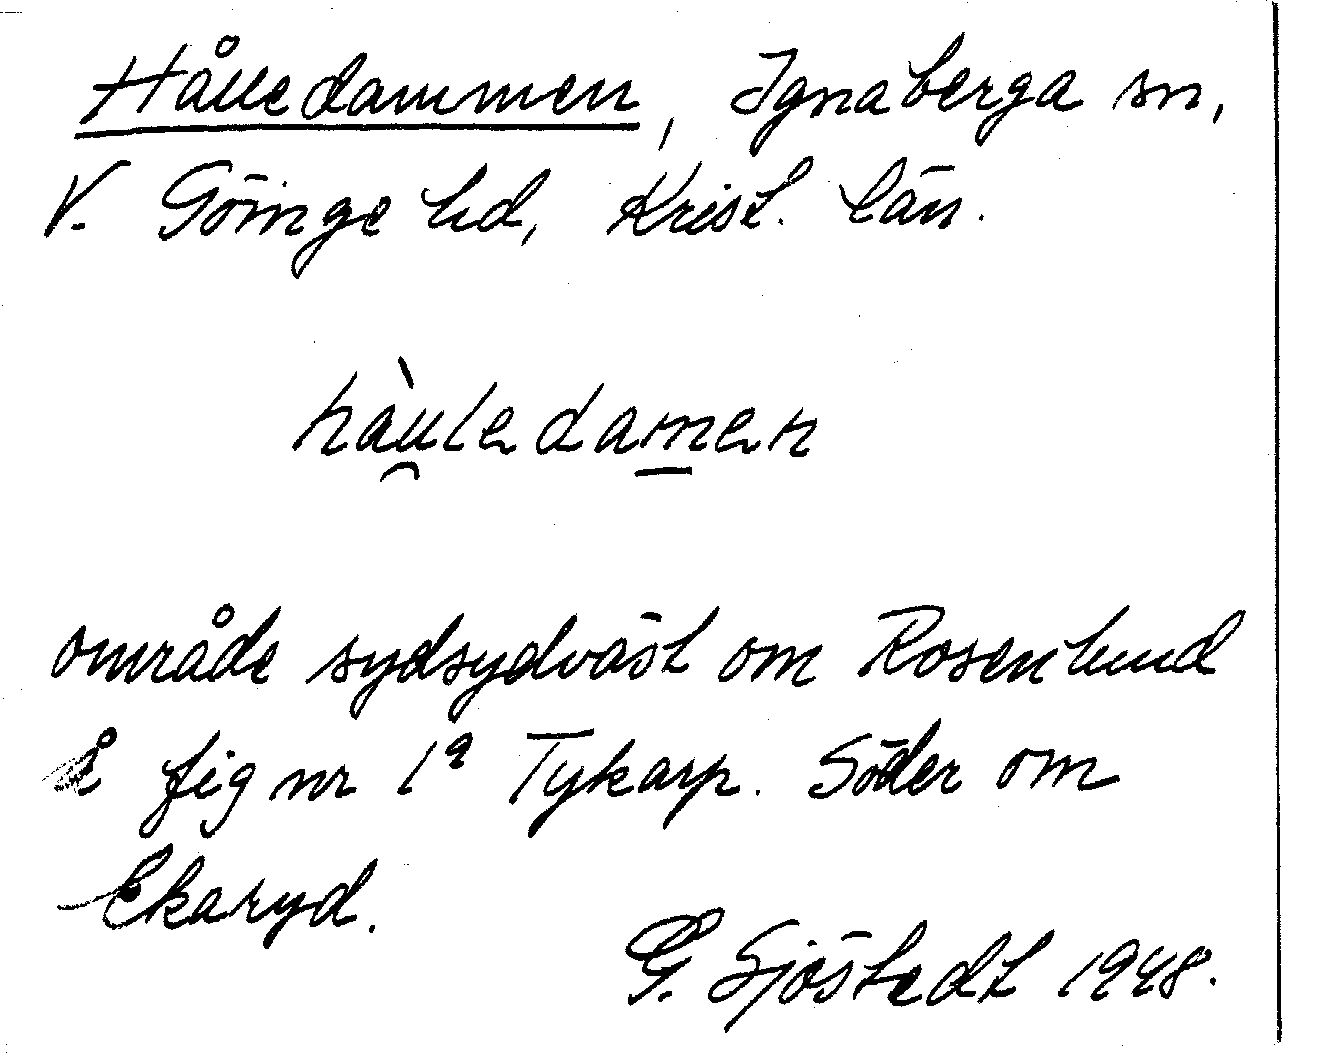 Hålledammen, Ignaberga sn,
V. Göinge hd, Krist. län.
hàu̯ledam̲en
område sydsydväst om Rosenlund
å fig nr 1ª Tykarp. Söder om
Ekaryd.
G. Sjöstedt 1948.